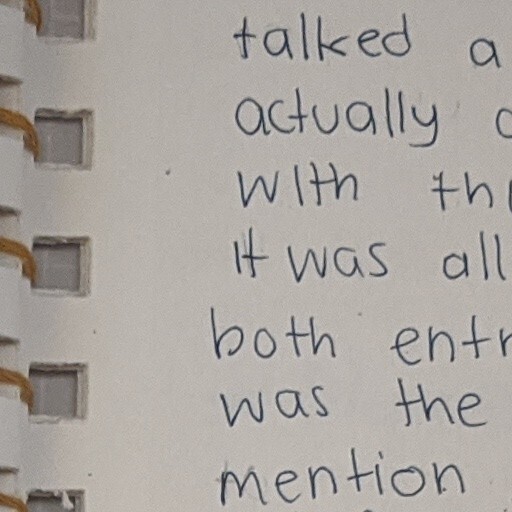 talked a
actually
with
it was all
both
was the
mention